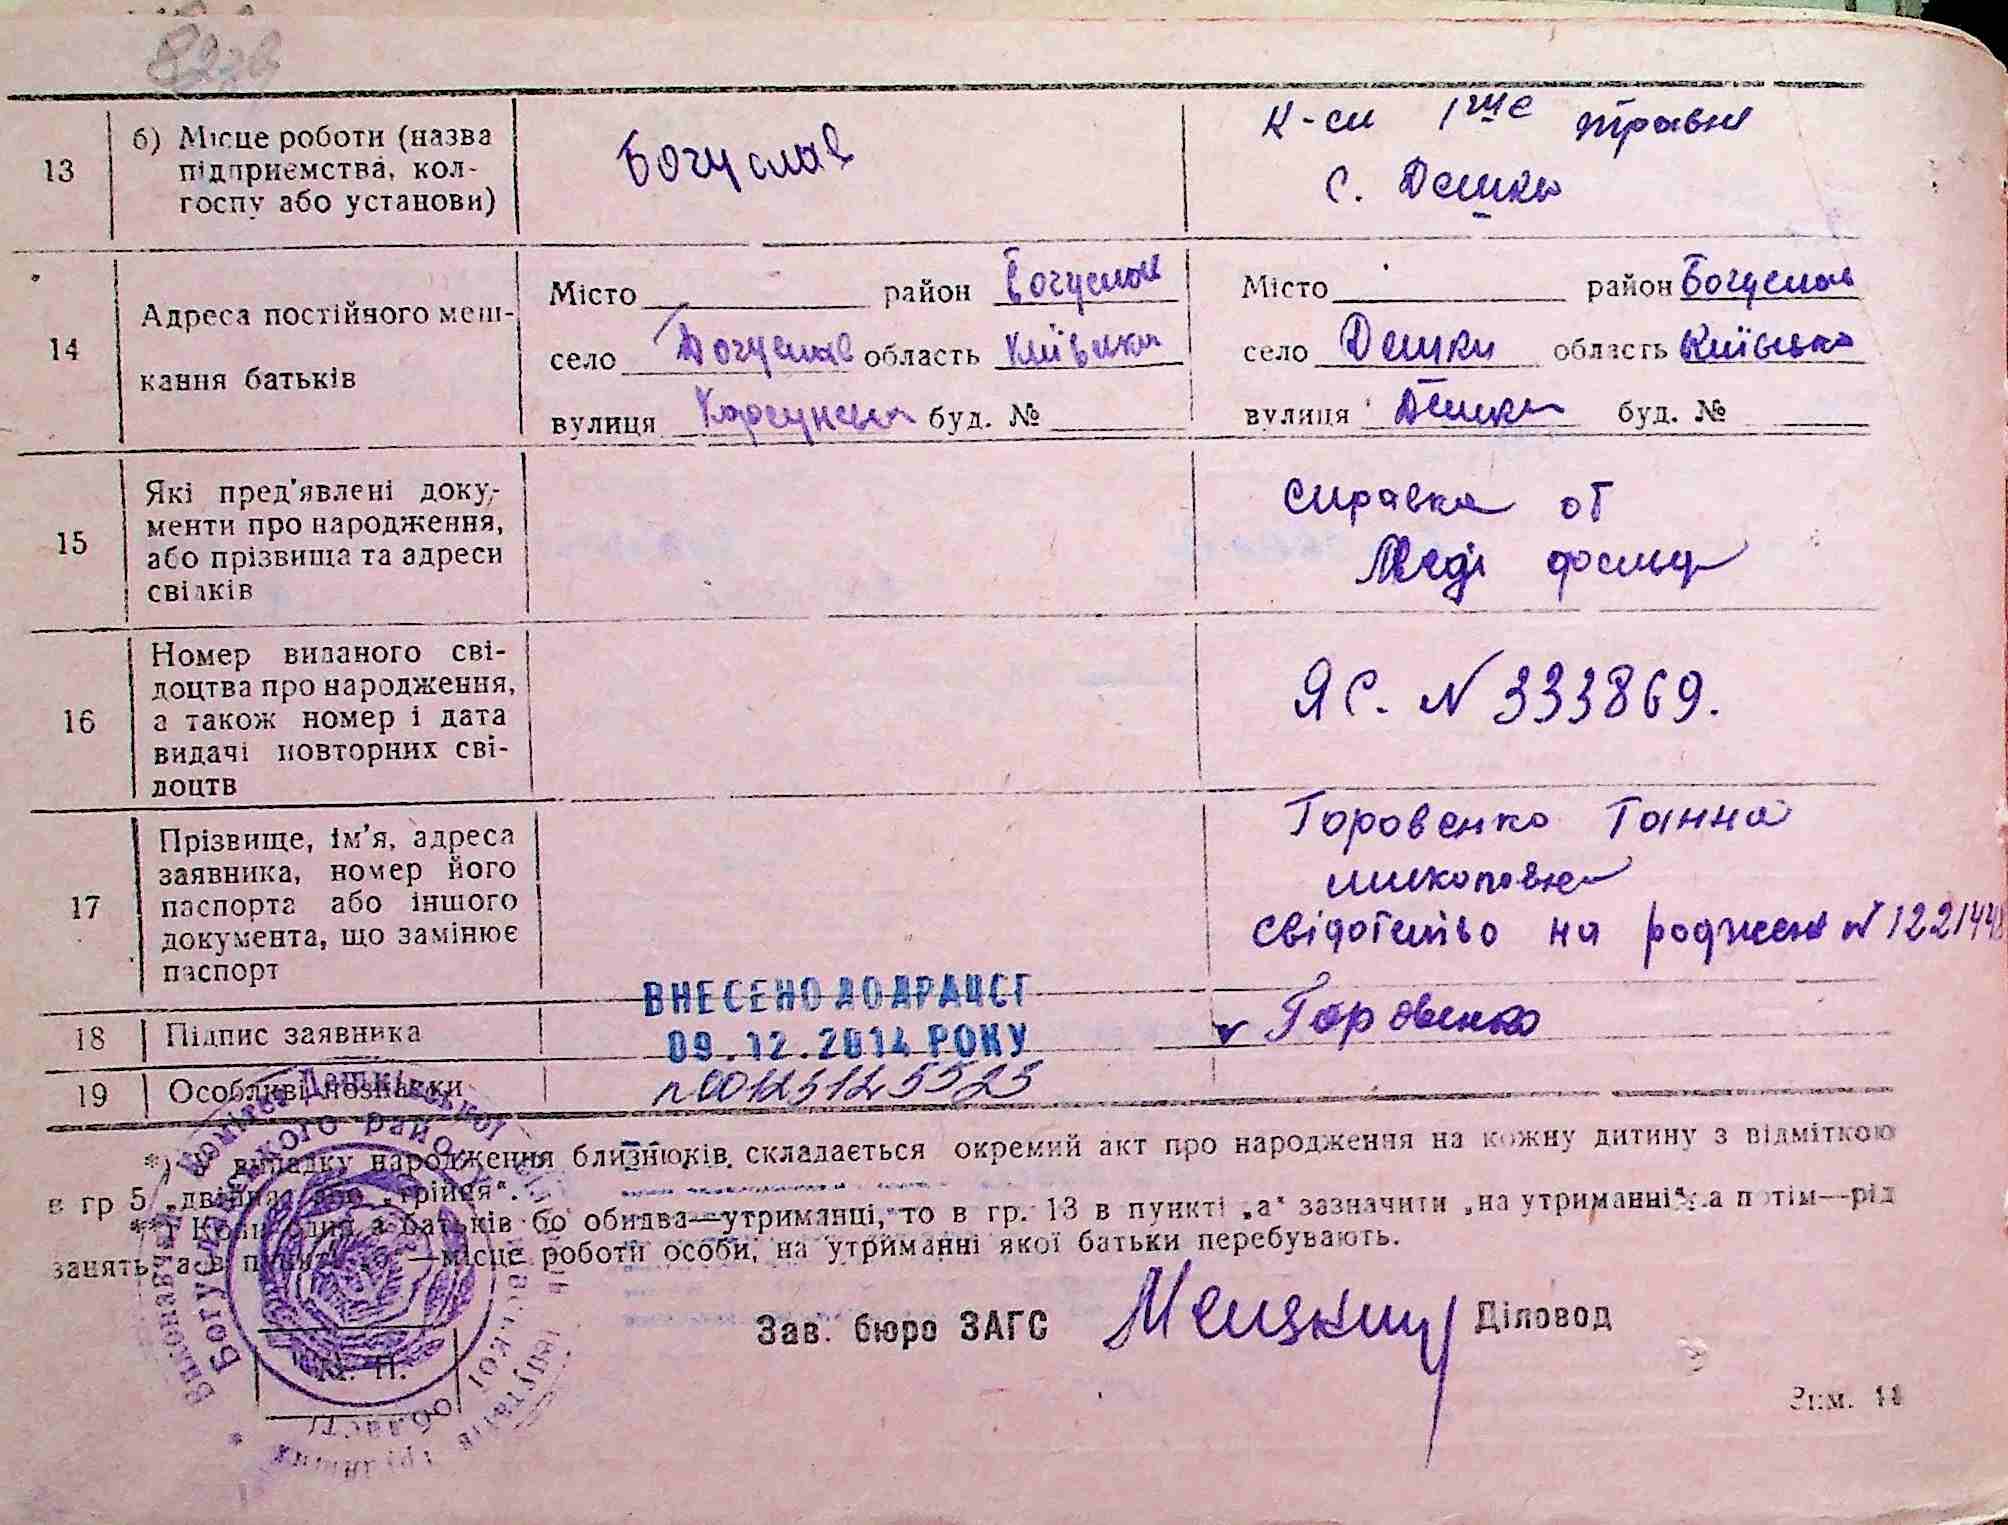 13
б) Місце роботи (назва
підприємства, кол-
госпу або установи)
Богуслав
К-си 1ше травня
с. Дешки
14
Адреса постійного меш-
кання батьків
Місто район Богуслав
село Богуслав область Київська
вулиця Корсунська буд. №
Місто район Богуслав
село Дешки область Київська
вулиця Дешки буд. №
15
Які пред'явлені доку-
менти про народження,
або прізвища та адреси
свідків
справка от
Меді фельд
16
Номер виданого сві-
доцтва про народження,
а також номер і дата
видачі повторних сві-
доцтв
ЯС. N 333869.
17
Прізвище, ім'я, адреса
заявника, номер його
паспорта або іншого
документа, що замінює
паспорт
Горовенко Ганна
свідотетво на роджене N 1221448
18
Підпис заявника
Горовенко
ВНЕСЕНО ДО ДРАЦСГ
09.12.2014 РОКУ
19
Особливі познавки
n00125125525
*) В випадку народження близнюків, складається окремий акт про народження на кожну дитину з відміткою
в гр 5 „двійня“ або „трійня“.
**) Коли один а батьків бо обидва—утриманці, то в гр. 13 в пункті „а“ зазначити „на утриманні“, а потім—рід
занять, а в пункті „б“—місце роботи особи, на утриманні якої батьки перебувають.
Зав. бюро ЗАГС
Діловод
М. П.
Зам. 18
Богуславського району Київської області